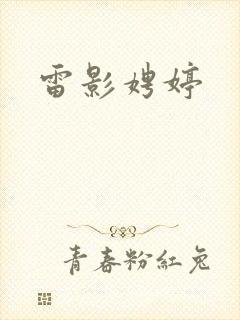 雷影娉婷
青春粉紅兔